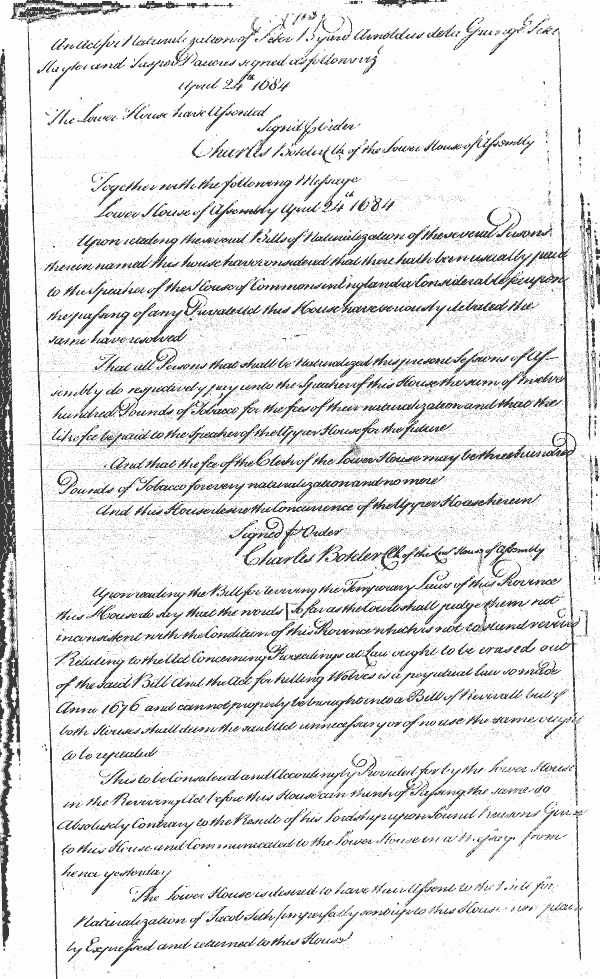 (113)
An Act for Naturalization of Peter Byard Arnoldus de la Grange Peter
Slayter and Jasper Daueres signed as follows viz
April 24th 1684
The Lower House have Assented
Signed p Order
Charles Boteler Clk of the Lower House of Assembly
Together with the following Message
Lower House of Assembly April 24th 1684
Upon reading the several Bills of Naturalization of the several Persons
therein named this house have considered that there hath been usually paid
to the Speaker of the House of Commons in England a Considerable fee upon
the passing of any Private Act this House have seriously debated the
same have resolved
That all Persons that shall be Naturalized this present Sessions of As-
sembly do respectively pay unto the Speaker of this House the sum of twelve
hundred Pounds of Tobacco for the fees of their naturalization and that the
like fee be paid to the Speaker of the Upper House for the future
And that the fee of the Clerk of the Lower House may be three hundred
Pounds of Tobacco for every naturalization and no more
And this House desire the Concurrence of the Upper House herein
Signed p Order
Charles Boteler Clk of the Low House of Assembly
Upon reading the Bill for reviving the Temporary Laws of this Province
this House do say that the words [so far as the Court shall judge them not
inconsistent with the Condition of this Province which is not to stand revived]
Relating to the Act Concerning Proceedings at Law ought to be erased out
of the said Bill And the Act for killing Wolves is a perpetual law so made
Anno 1676 and cannot properly be brought into a Bill of Revivall but if
both Houses shall deem the said Act unnecessary or of no use the same ought
to be repealed
This to be Considered and Accordingly Provided for by the Lower House
in the Reviving Act before this House can think of Passing the same so
Absolutely Contrary to the Result of his Lordship upon Sound Reasons Given
to this House and Communicated to the Lower House in a Message from
hence yesterday
The Lower House is desired to have their Assent to the Bill for
Naturalization of Jacob Seth imperfectly sent up to this House more plain
ly Expressed and returned to this House